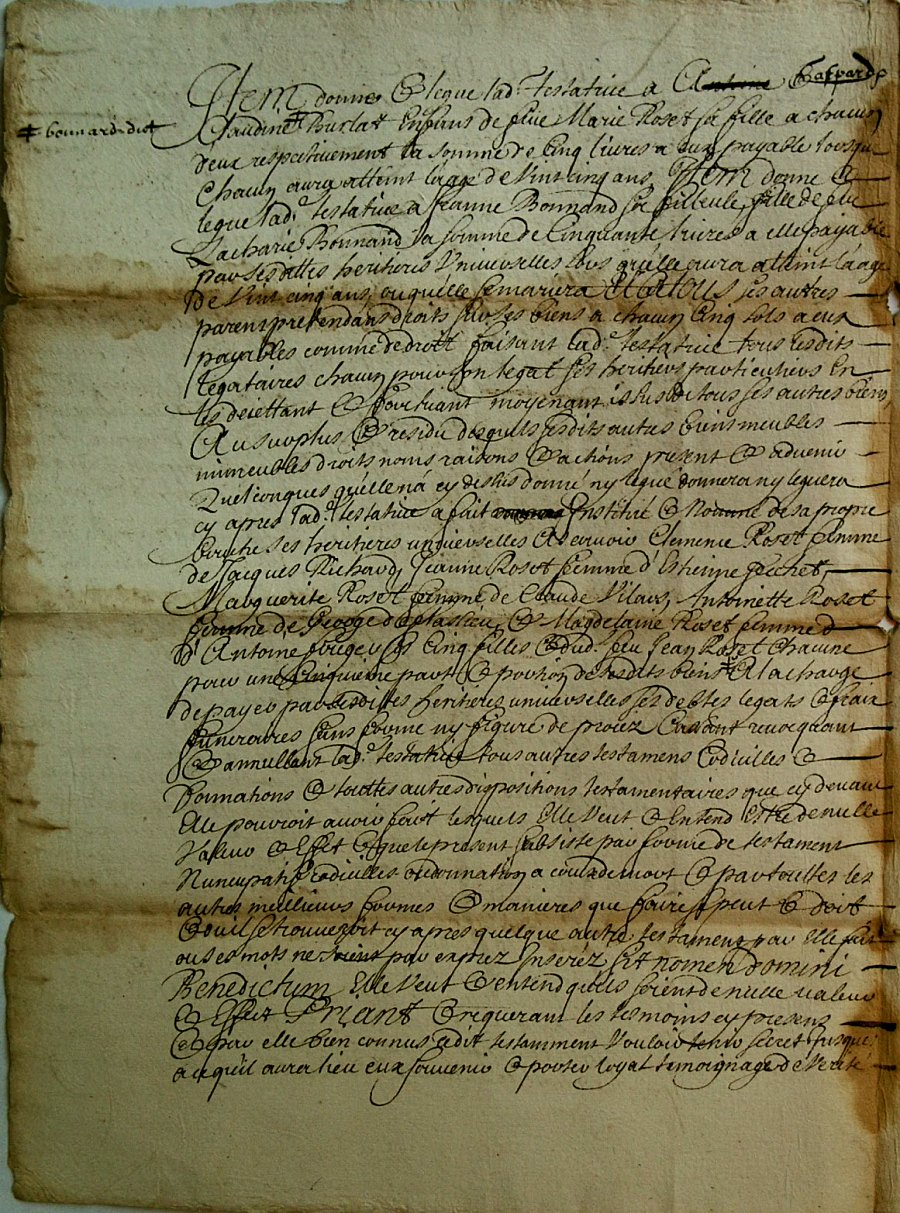 Item donne & legue lad.e testatrice a Antoine Gaspard &
# bonnard dict
Claudine # Burlat Enfans de feue Marie Roset sa fille a chacun
deux respectivement la somme de Cinq livres a eux payable lorsque
Chacun aura atteint laage de Vint cinq ans Item donne &
legue lad.e testatrice a Jeanne Bonnand sa filleule, fille de feu
Zacharie Bonnand la somme de Cinquante livres a elle payable
par sesdittes heritieres Universelles lors qu'elle aura atteint laage
de Vint cinq ans, ou qu'elle se mariera Et a tous ses autres
parens pretendans droits sur ses biens a chacun Cinq sols a eux
payables comme de droit faisant lad.e testatrice tous lesdits
legataires chacun pour son legat ses heritiers particuliers En
les deiettant & privant moyenant ce de tous ses autres biens,
Au surplus & residu desquels sesdits autres biens meubles
immeubles droits noms raisons & actions present & advenir
Quelconques qu'elle n'a cy dessus donné ny legué donnera ny leguera
cy apres lad.e testatrice a fait Institué & Nommé de sa propre
bouche ses heritieres universelles Ascavoir Clemence Roset femme
de Jacques Richard, Jeanne Roset femme d'Estienne Pechet,
Marguerite Roset femme de Claude Vilars, Antoinette Roset
femme de George & Magdelaine Roset femme d
d'Antoine ses Cinq filles & dud. feu Jean Roset Chacune
pour une Cinquieme part & portion de sesdits biens # A la charge
de payer par sesdites heritieres universelles ses debtes legats & frais
funeraires sans forme ny figure de procez Cassant revocquant
& annullant lad.e testatrice tous autres testamens Codicilles &
donnations & touttes autres dispositions testamentaires que cy devant
Elle pouvoit avoir fait lesquels Elle Veut & Entend Estre de nulle
Valeur & Effet & que le present subsiste par forme de testament
Nuncupatif Codicilles ou donnation a cause de mort & par touttes les
autres meilleurs formes & manieres que faire se peut & doit
& ou il se trouveroit cy apres quelque autre testament par elle fait
ou ses mots ne soient par exprez Inserez sit nomen domini
Benedictum Elle Veut & entend qu'ils soient de nulle valeur
& Effet Priant & requerant les tesmoins cy presens
& par elle bien connus cedit testamment Vouloir tenir secret jusque
a ce qu'il aura lieu eux souvenir & porter loyal temoignage de Verité